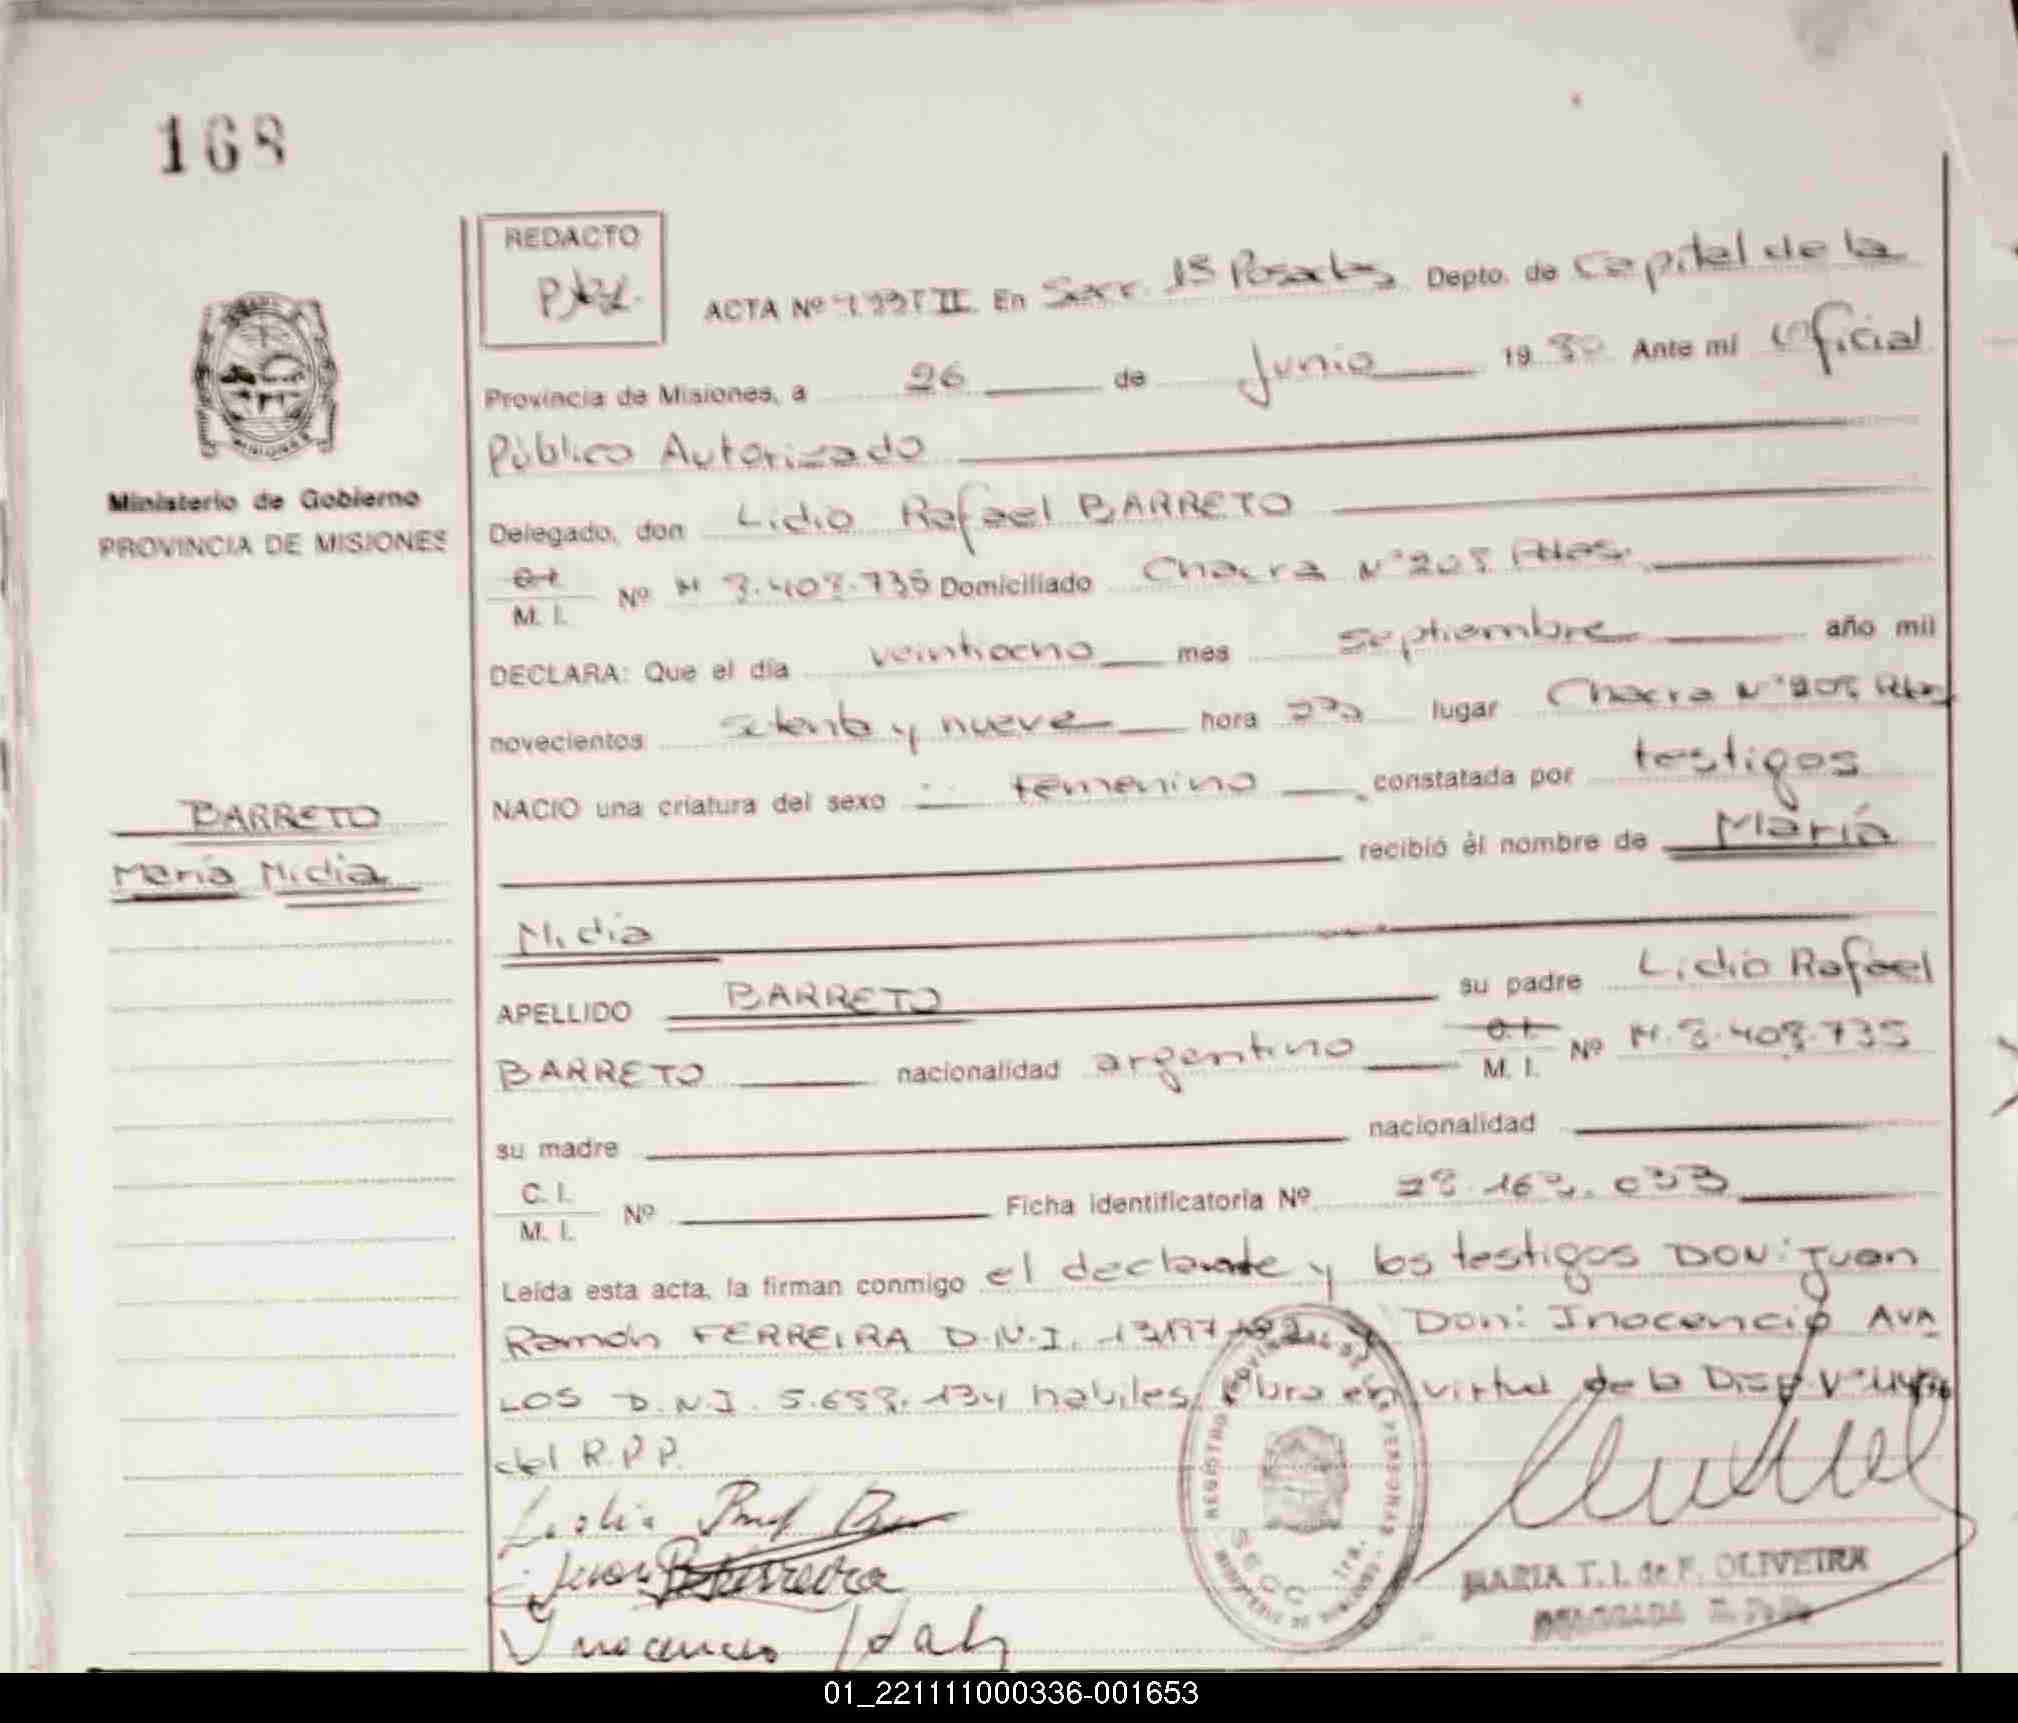 168
REDACTO
ACTA Nº T II En Secc. 1ª Posadas Depto. de Capital de la
Provincia de Misiones, a 26 de Junio 19 80 Ante mi Oficial
Público Autorizado
Ministerio de Gobierno
PROVINCIA DE MISIONES
Delegado, don Lidio Rafael BARRETO
C.I. M. I. Nº M 8.408.735 Domiciliado Chacra Nº 208 Pdas.
DECLARA: Que el día veintiocho mes septiembre año mil
novecientos setenta y nueve hora lugar Chacra Nº 208 Pdas
NACIO una criatura del sexo : femenino constatada por testigos
BARRETO
María Nidia
recibió él nombre de María
Nidia
APELLIDO BARRETO su padre Lidio Rafael
BARRETO nacionalidad argentino C.I. M. I. Nº M. 8.408.735
su madre nacionalidad
C. I. M. I. Nº Ficha identificatoria Nº 28.163.033
Leída esta acta, la firman conmigo el declarante y los testigos DON: Juan
Ramón FERREIRA D.N.I. y Don: Inocencio AVA
LOS D.N.I. 5.658.134 habiles, Obra en virtud de la Disp.
del R.P.P.
Juan Ferreira
Inocencio
REGISTRO PROVINCIAL DE LAS PERSONAS
SECC. 1ra.
MARIA T. I. de F. OLIVEIRA
DELEGADA
01_221111000336-001653